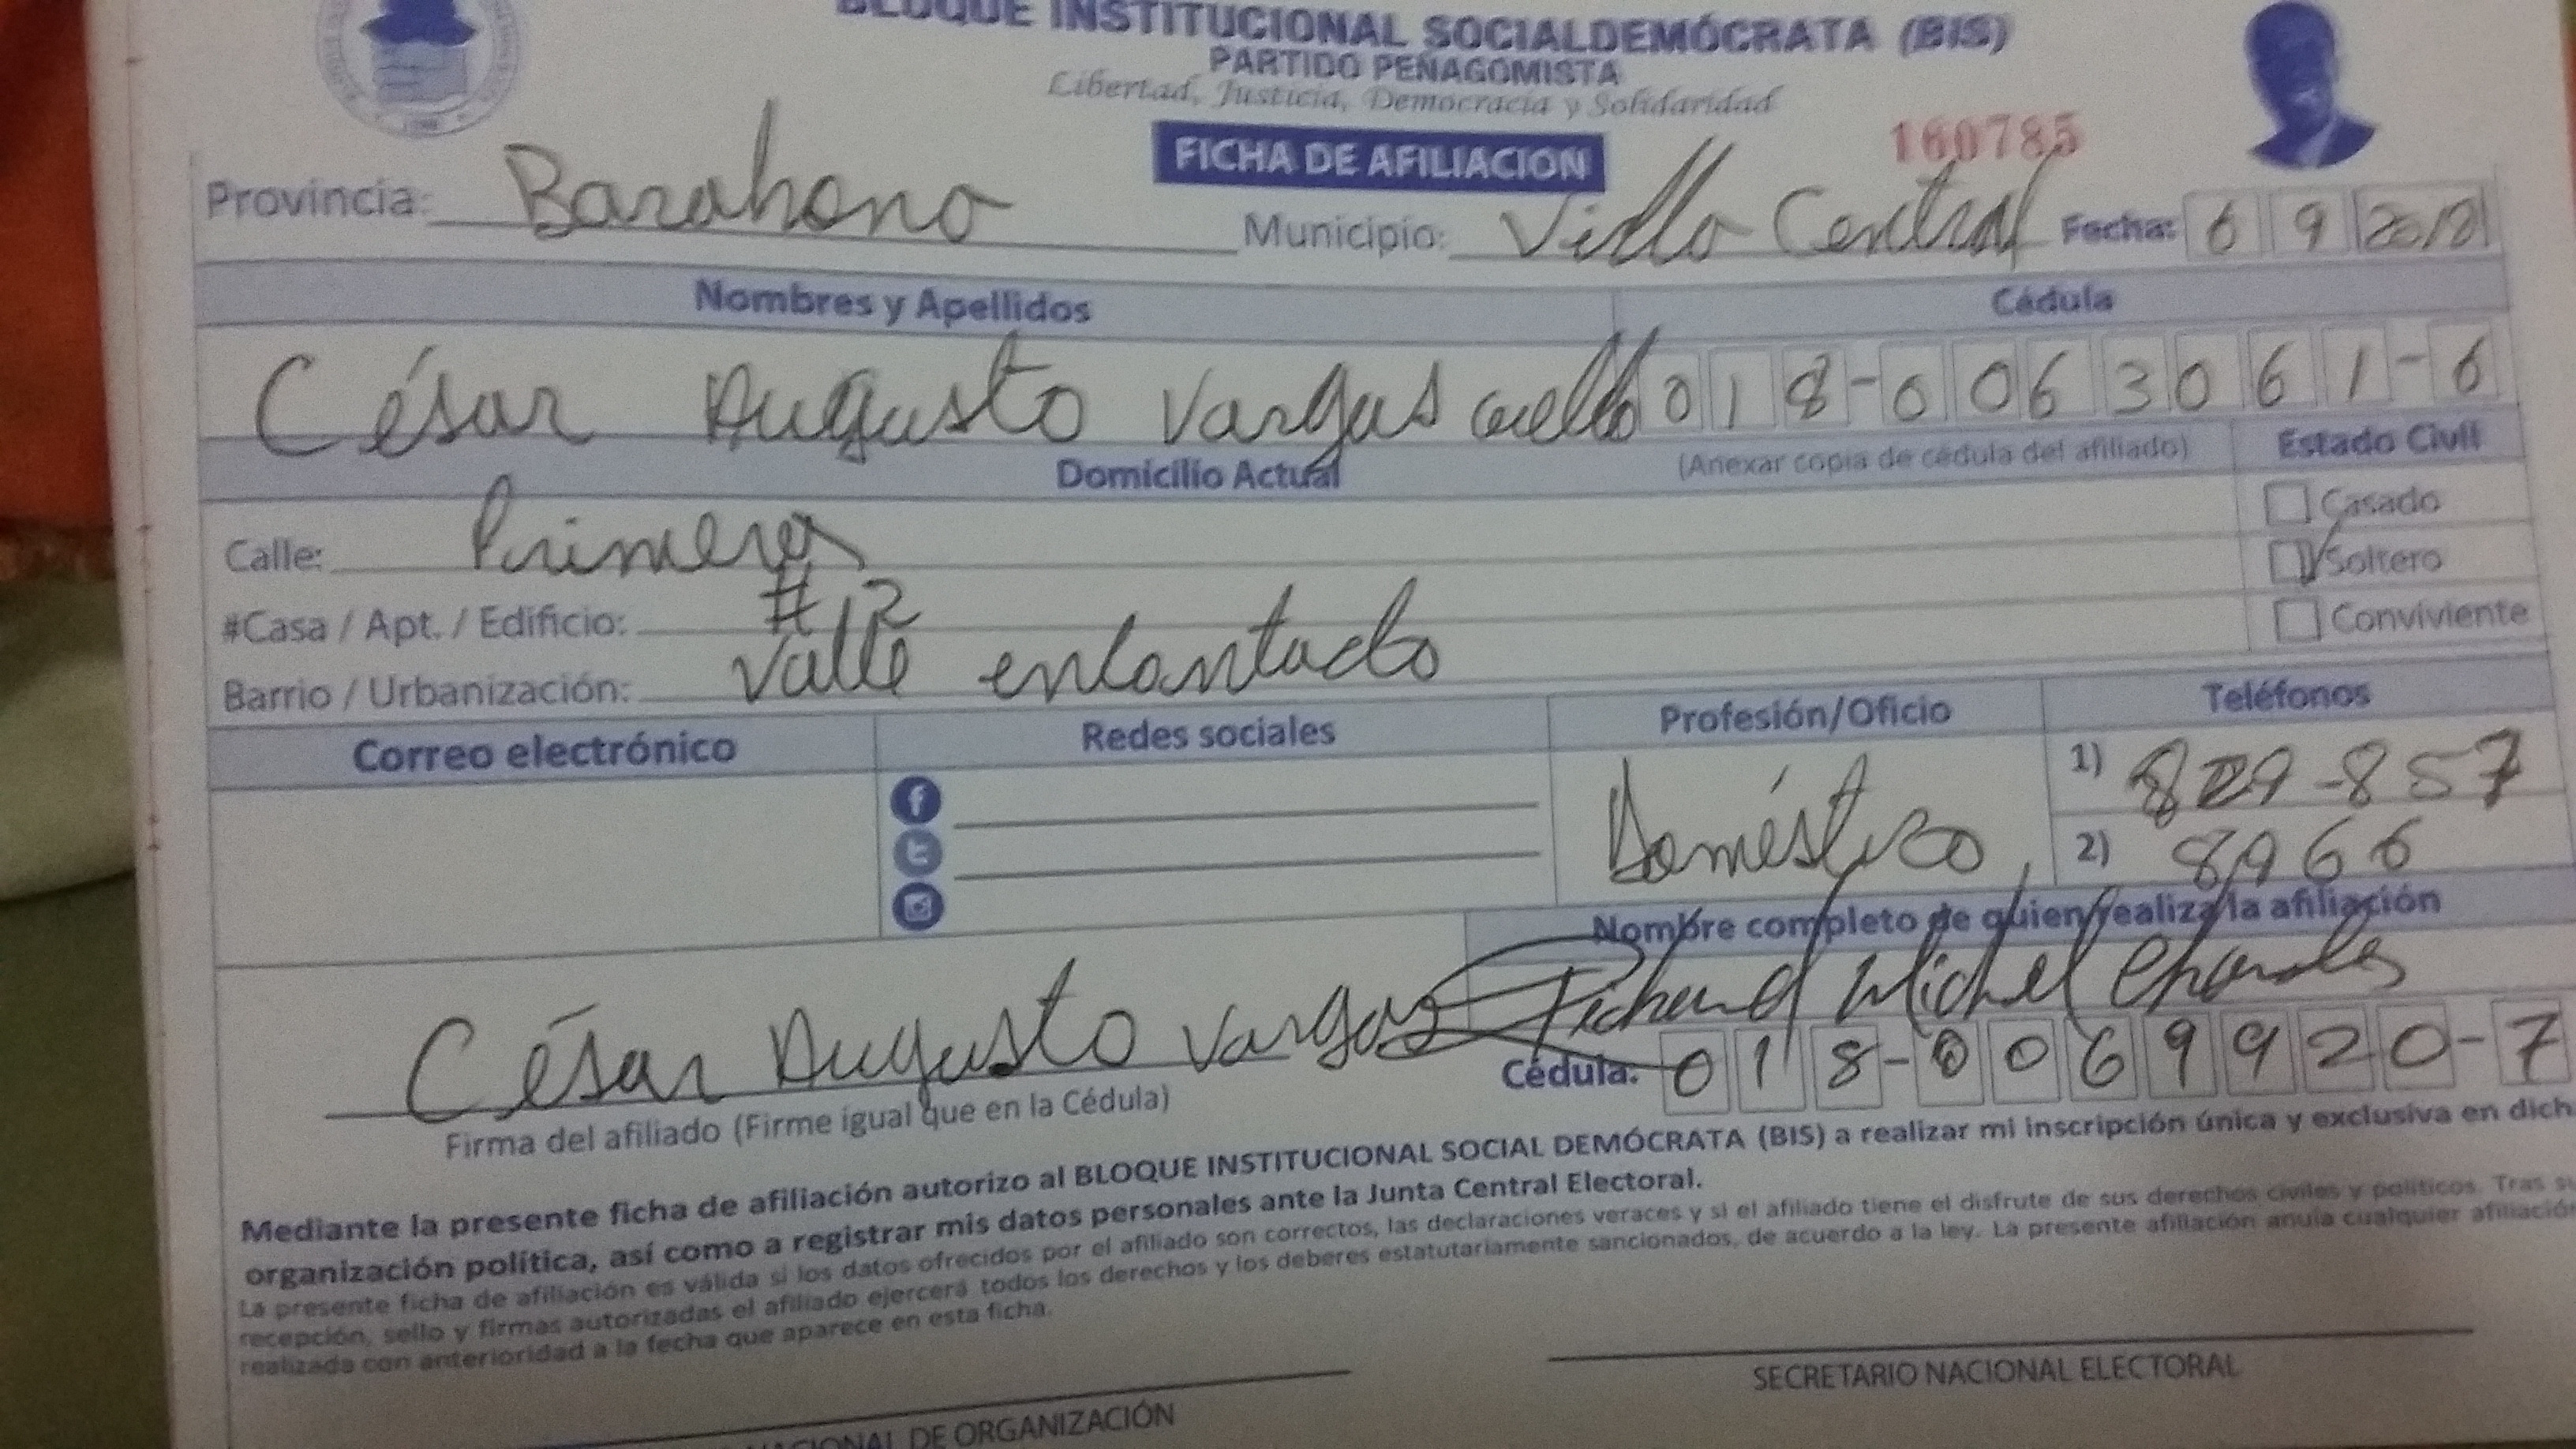 BLOQUE INSTITUCIONAL SOCIALDEMÓCRATA (BIS)
PARTIDO PEÑAGOMISTA
Libertad, Justicia, Democracia y Solidaridad
FICHA DE AFILIACION
160785
Provincia: Barahona Municipio: Villa Central Fecha: 6 9 2018
Nombres y Apellidos Cédula
César Augusto Vargas cuello 018-0063061-6
Domicilio Actual (Anexar copia de cédula del afiliado) Estado Civil
Calle: Primera Casado
#Casa / Apt. / Edificio: #12 Soltero
Barrio / Urbanización: Valle encantado Conviviente
Correo electrónico Redes sociales Profesión/Oficio Teléfonos
Doméstico 1) 829-857
2) 8966
Nombre completo de quien realiza la afiliación
César Augusto Vargas Richard Michel
Cédula: 018-0069920-7
Firma del afiliado (Firme igual que en la Cédula)
Mediante la presente ficha de afiliación autorizo al BLOQUE INSTITUCIONAL SOCIAL DEMÓCRATA (BIS) a realizar mi inscripción única y exclusiva en dich
organización política, así como a registrar mis datos personales ante la Junta Central Electoral.
La presente ficha de afiliación es válida si los datos ofrecidos por el afiliado son correctos, las declaraciones veraces y si el afiliado tiene el disfrute de sus derechos civiles y políticos. Tras su
recepción, sello y firmas autorizadas el afiliado ejercerá todos los derechos y los deberes estatutariamente sancionados, de acuerdo a la ley. La presente afiliación anula cualquier afiliación
realizada con anterioridad a la fecha que aparece en esta ficha.
SECRETARIO NACIONAL ELECTORAL
NACIONAL DE ORGANIZACIÓN